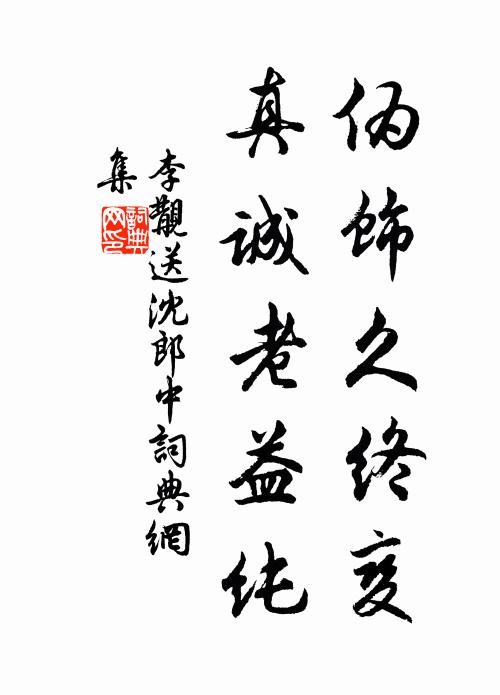 伪饰久终变
真诚老益纯
李覯送沈郎中詞典網
集
詞典网印